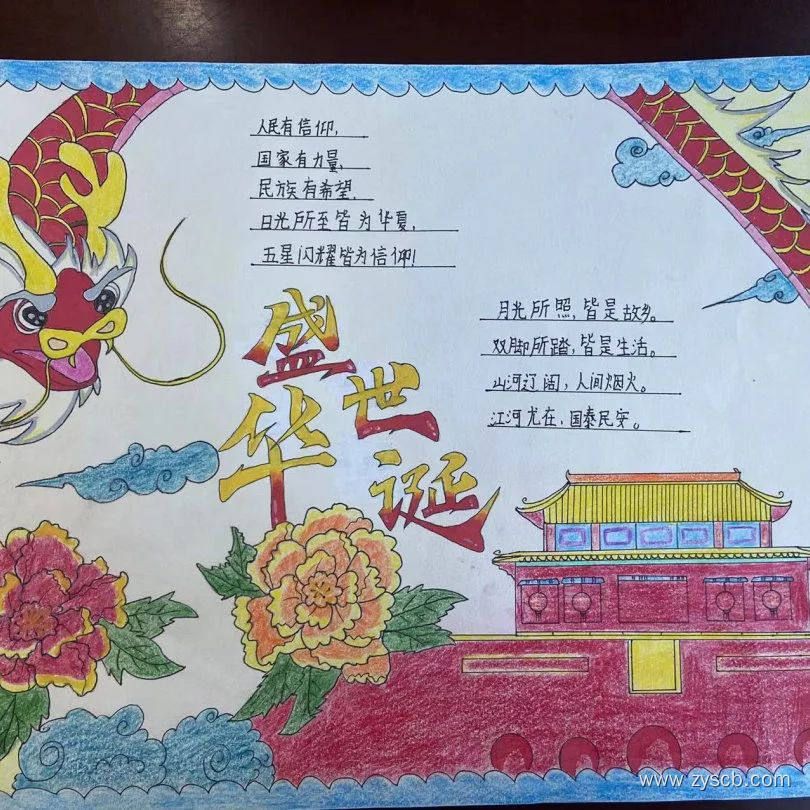 人民有信仰,
国家有力量,
民族有希望,
日光所至皆为华夏,
五星闪耀皆为信仰!
盛世
华诞
月光所照,皆是故乡。
双脚所踏,皆是生活。
山河辽阔,人间烟火。
江河尤在,国泰民安。
www.zyscb.com